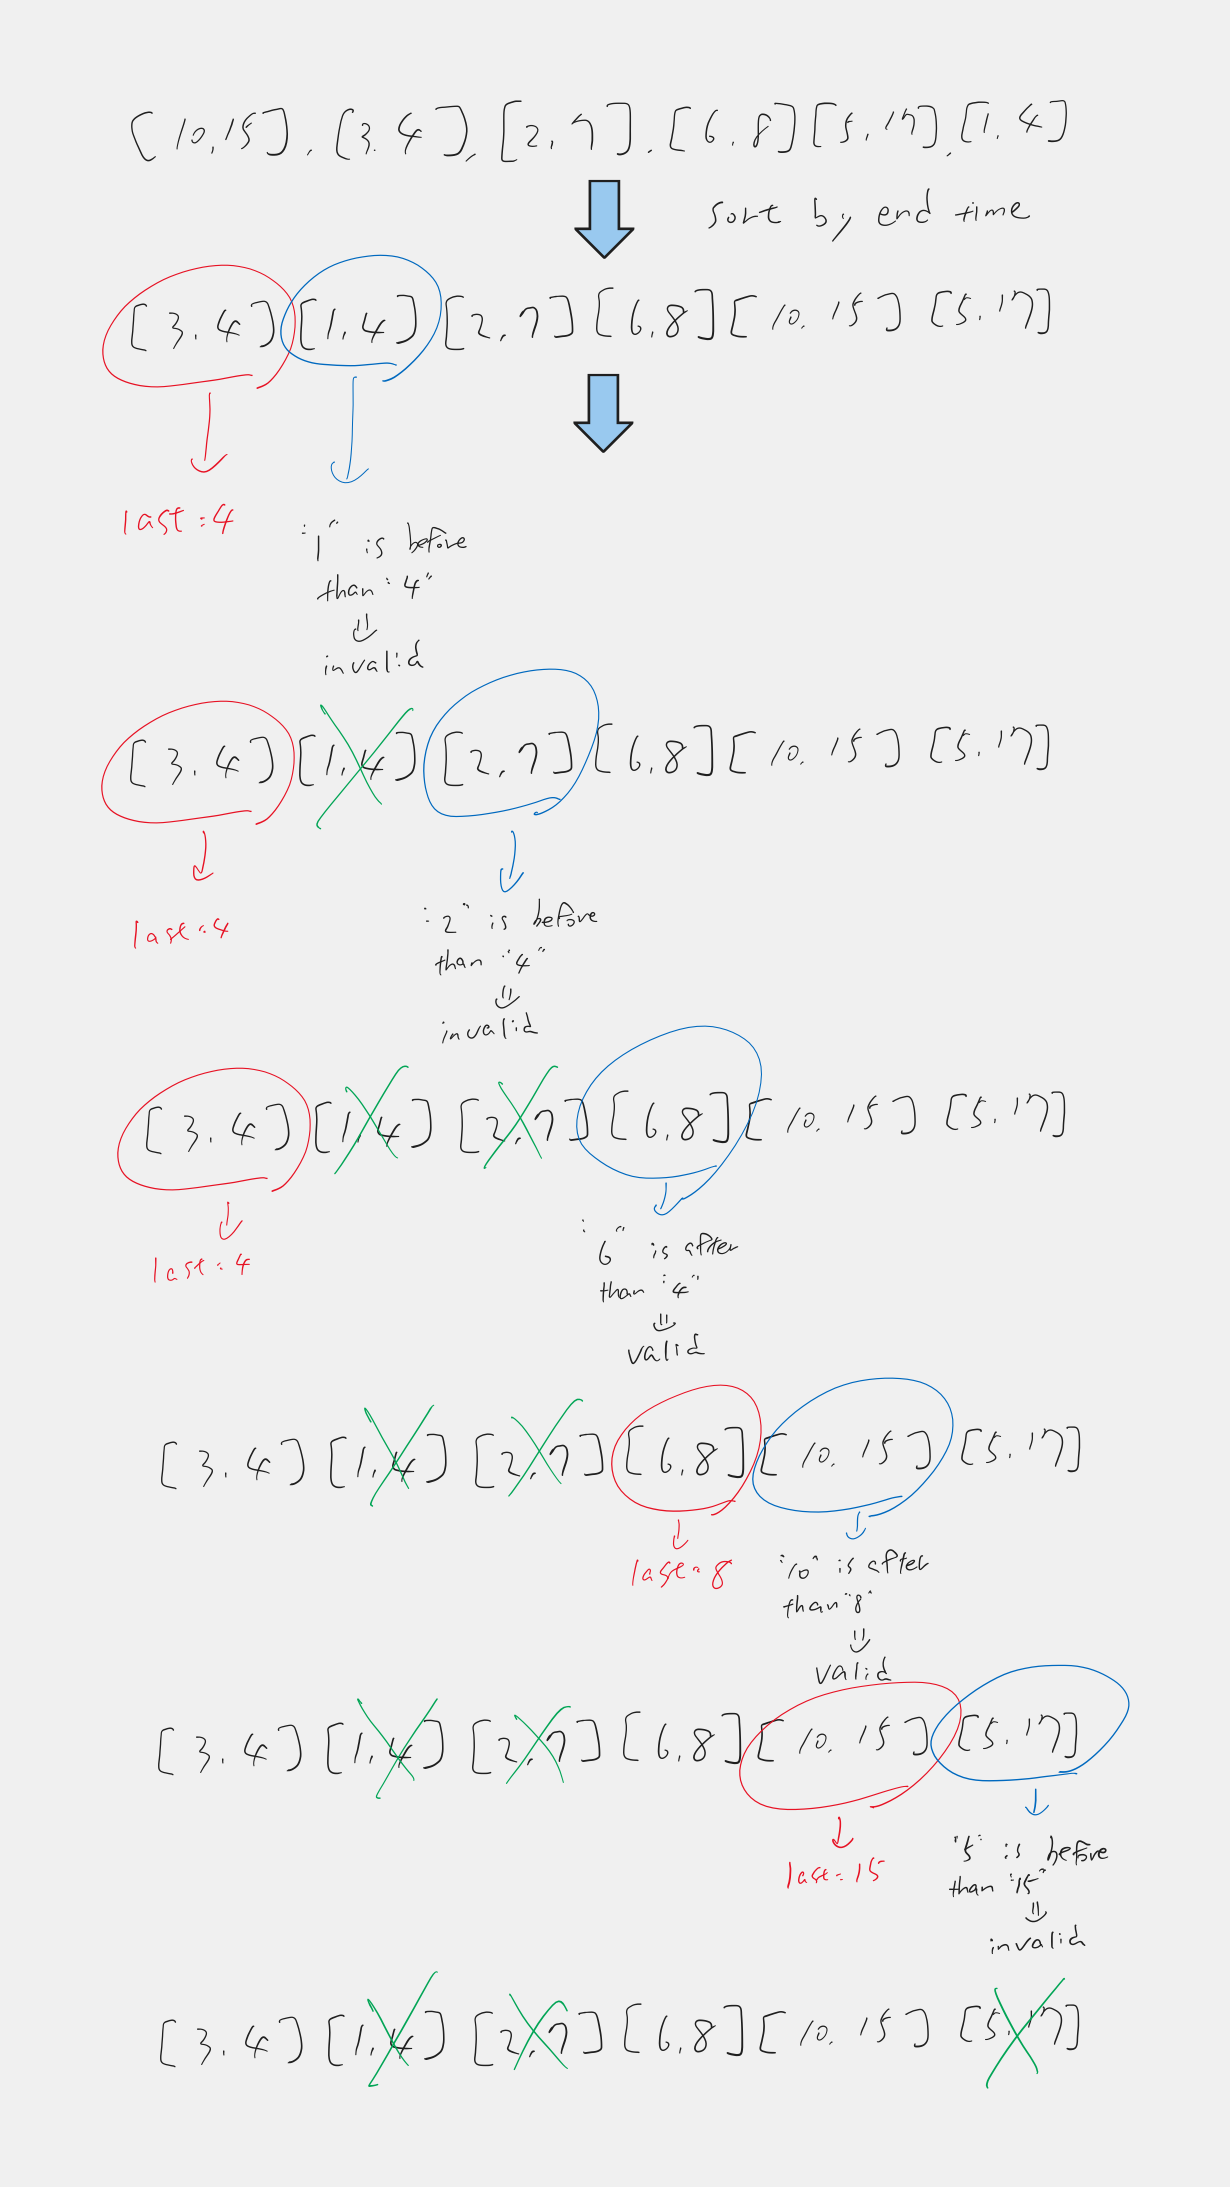 [10,15], [3.4], [2,7], [6,8] [5,17], [1,4]
sort by end time
[3.4] [1,4] [2,7] [6,8] [10.15] [5.17]
last=4
"1" is before
than "4"
invalid
[3.4] [1,4] [2,7] [6,8] [10.15] [5.17]
last=4
"2" is before
than "4"
invalid
[3.4] [1,4] [2,7] [6,8] [10.15] [5.17]
last=4
"6" is after
than "4"
valid
[3.4] [1,4] [2,7] [6,8] [10.15] [5.17]
last=8
"10" is after
than "8"
valid
[3.4] [1,4] [2,7] [6,8] [10.15] [5.17]
last=15
"5" is before
than "15"
invalid
[3.4] [1,4] [2,7] [6,8] [10.15] [5.17]